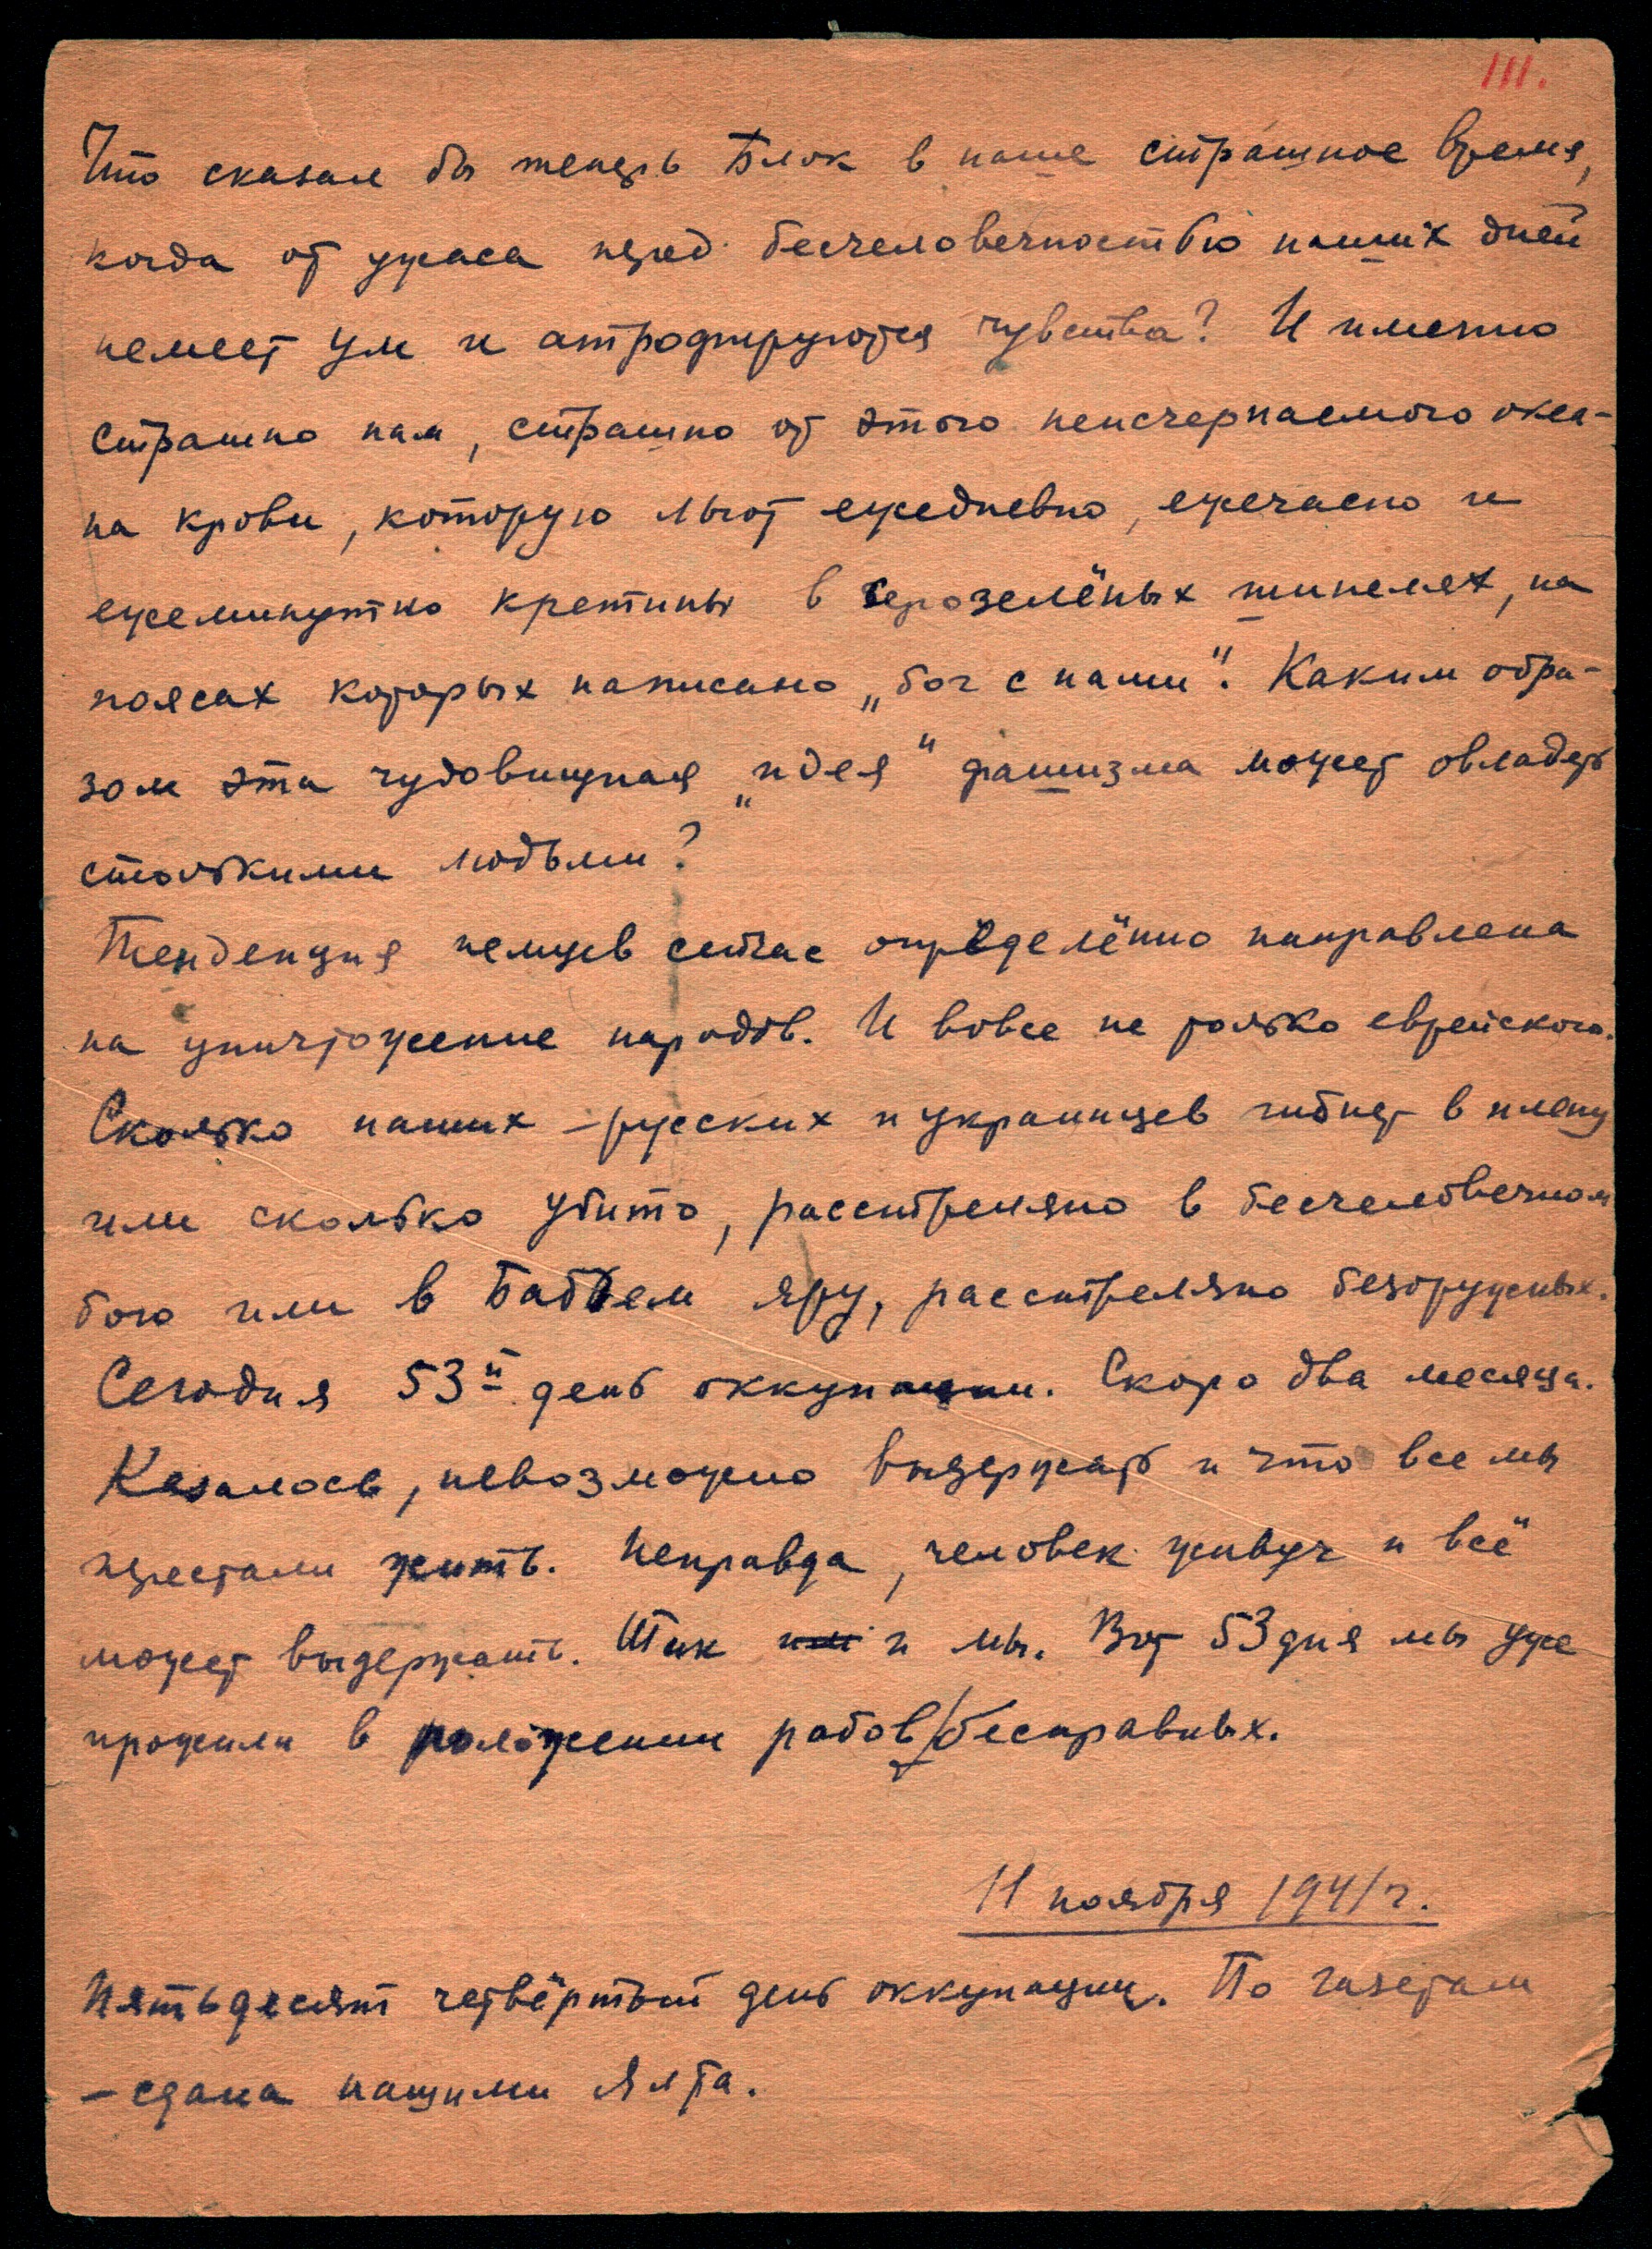 111.
Что сказал бы теперь Блок в наше страшное время,
когда от ужаса перед бесчеловечностью наших дней
немеет ум и атрофируются чувства? И именно
страшно нам, страшно от этого неисчерпаемого океа-
на крови, которую льют ежедневно, ежечасно и
ежеминутно кретины в серозелёных шинелях, на
поясах которых написано „бог с нами“. Каким обра-
зом эта чудовищная „идея“ фашизма может овладеть
столькими людьми?
Тенденция немцев сейчас определённо направлена
на уничтожение народов. И вовсе не только еврейского.
Сколько наших – русских и украинцев гибнет в плену
или сколько убито, расстреляно в бесчеловечном
бою или в Бабьем яру, расстреляно безоружных.
Сегодня 53й день оккупации. Скоро два месяца.
Казалось, невозможно выдержать и что все мы
перестали жить. Неправда, человек живуч и всё
может выдержать. Так и мы. Вот 53 дня мы уже
прожили в положении рабов/бесправных.
11 ноября 1941 г.
Пятьдесят четвёртый день оккупации. По газетам
– сдана нашими Ялта.